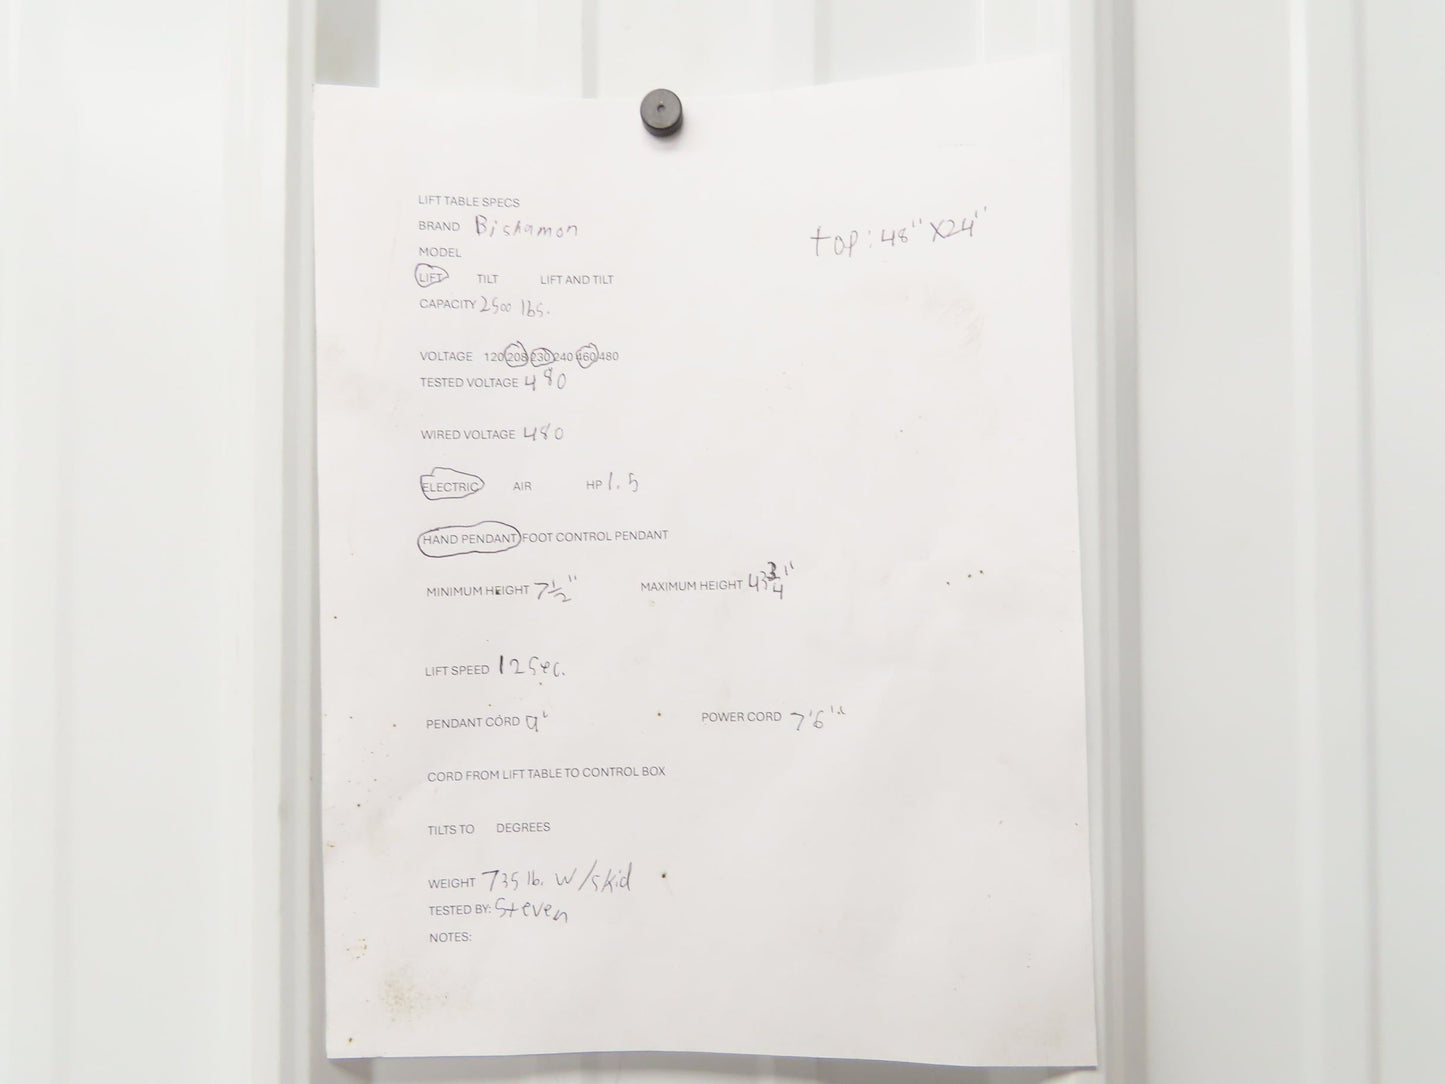 LIFT TABLE SPECS
BRAND Bishamon
top: 48" X24"
MODEL
LIFT TILT LIFT AND TILT
CAPACITY 2500 lbs.
VOLTAGE 120 208 230 240 460 480
TESTED VOLTAGE 480
WIRED VOLTAGE 480
ELECTRIC AIR HP 1.5
HAND PENDANT FOOT CONTROL PENDANT
MINIMUM HEIGHT 7 1/2" MAXIMUM HEIGHT 43 3/4"
LIFT SPEED 12 Sec.
PENDANT CORD 9' POWER CORD 7'6"
CORD FROM LIFT TABLE TO CONTROL BOX
TILTS TO DEGREES
WEIGHT 735 lb. w/skid
TESTED BY: Steven
NOTES: